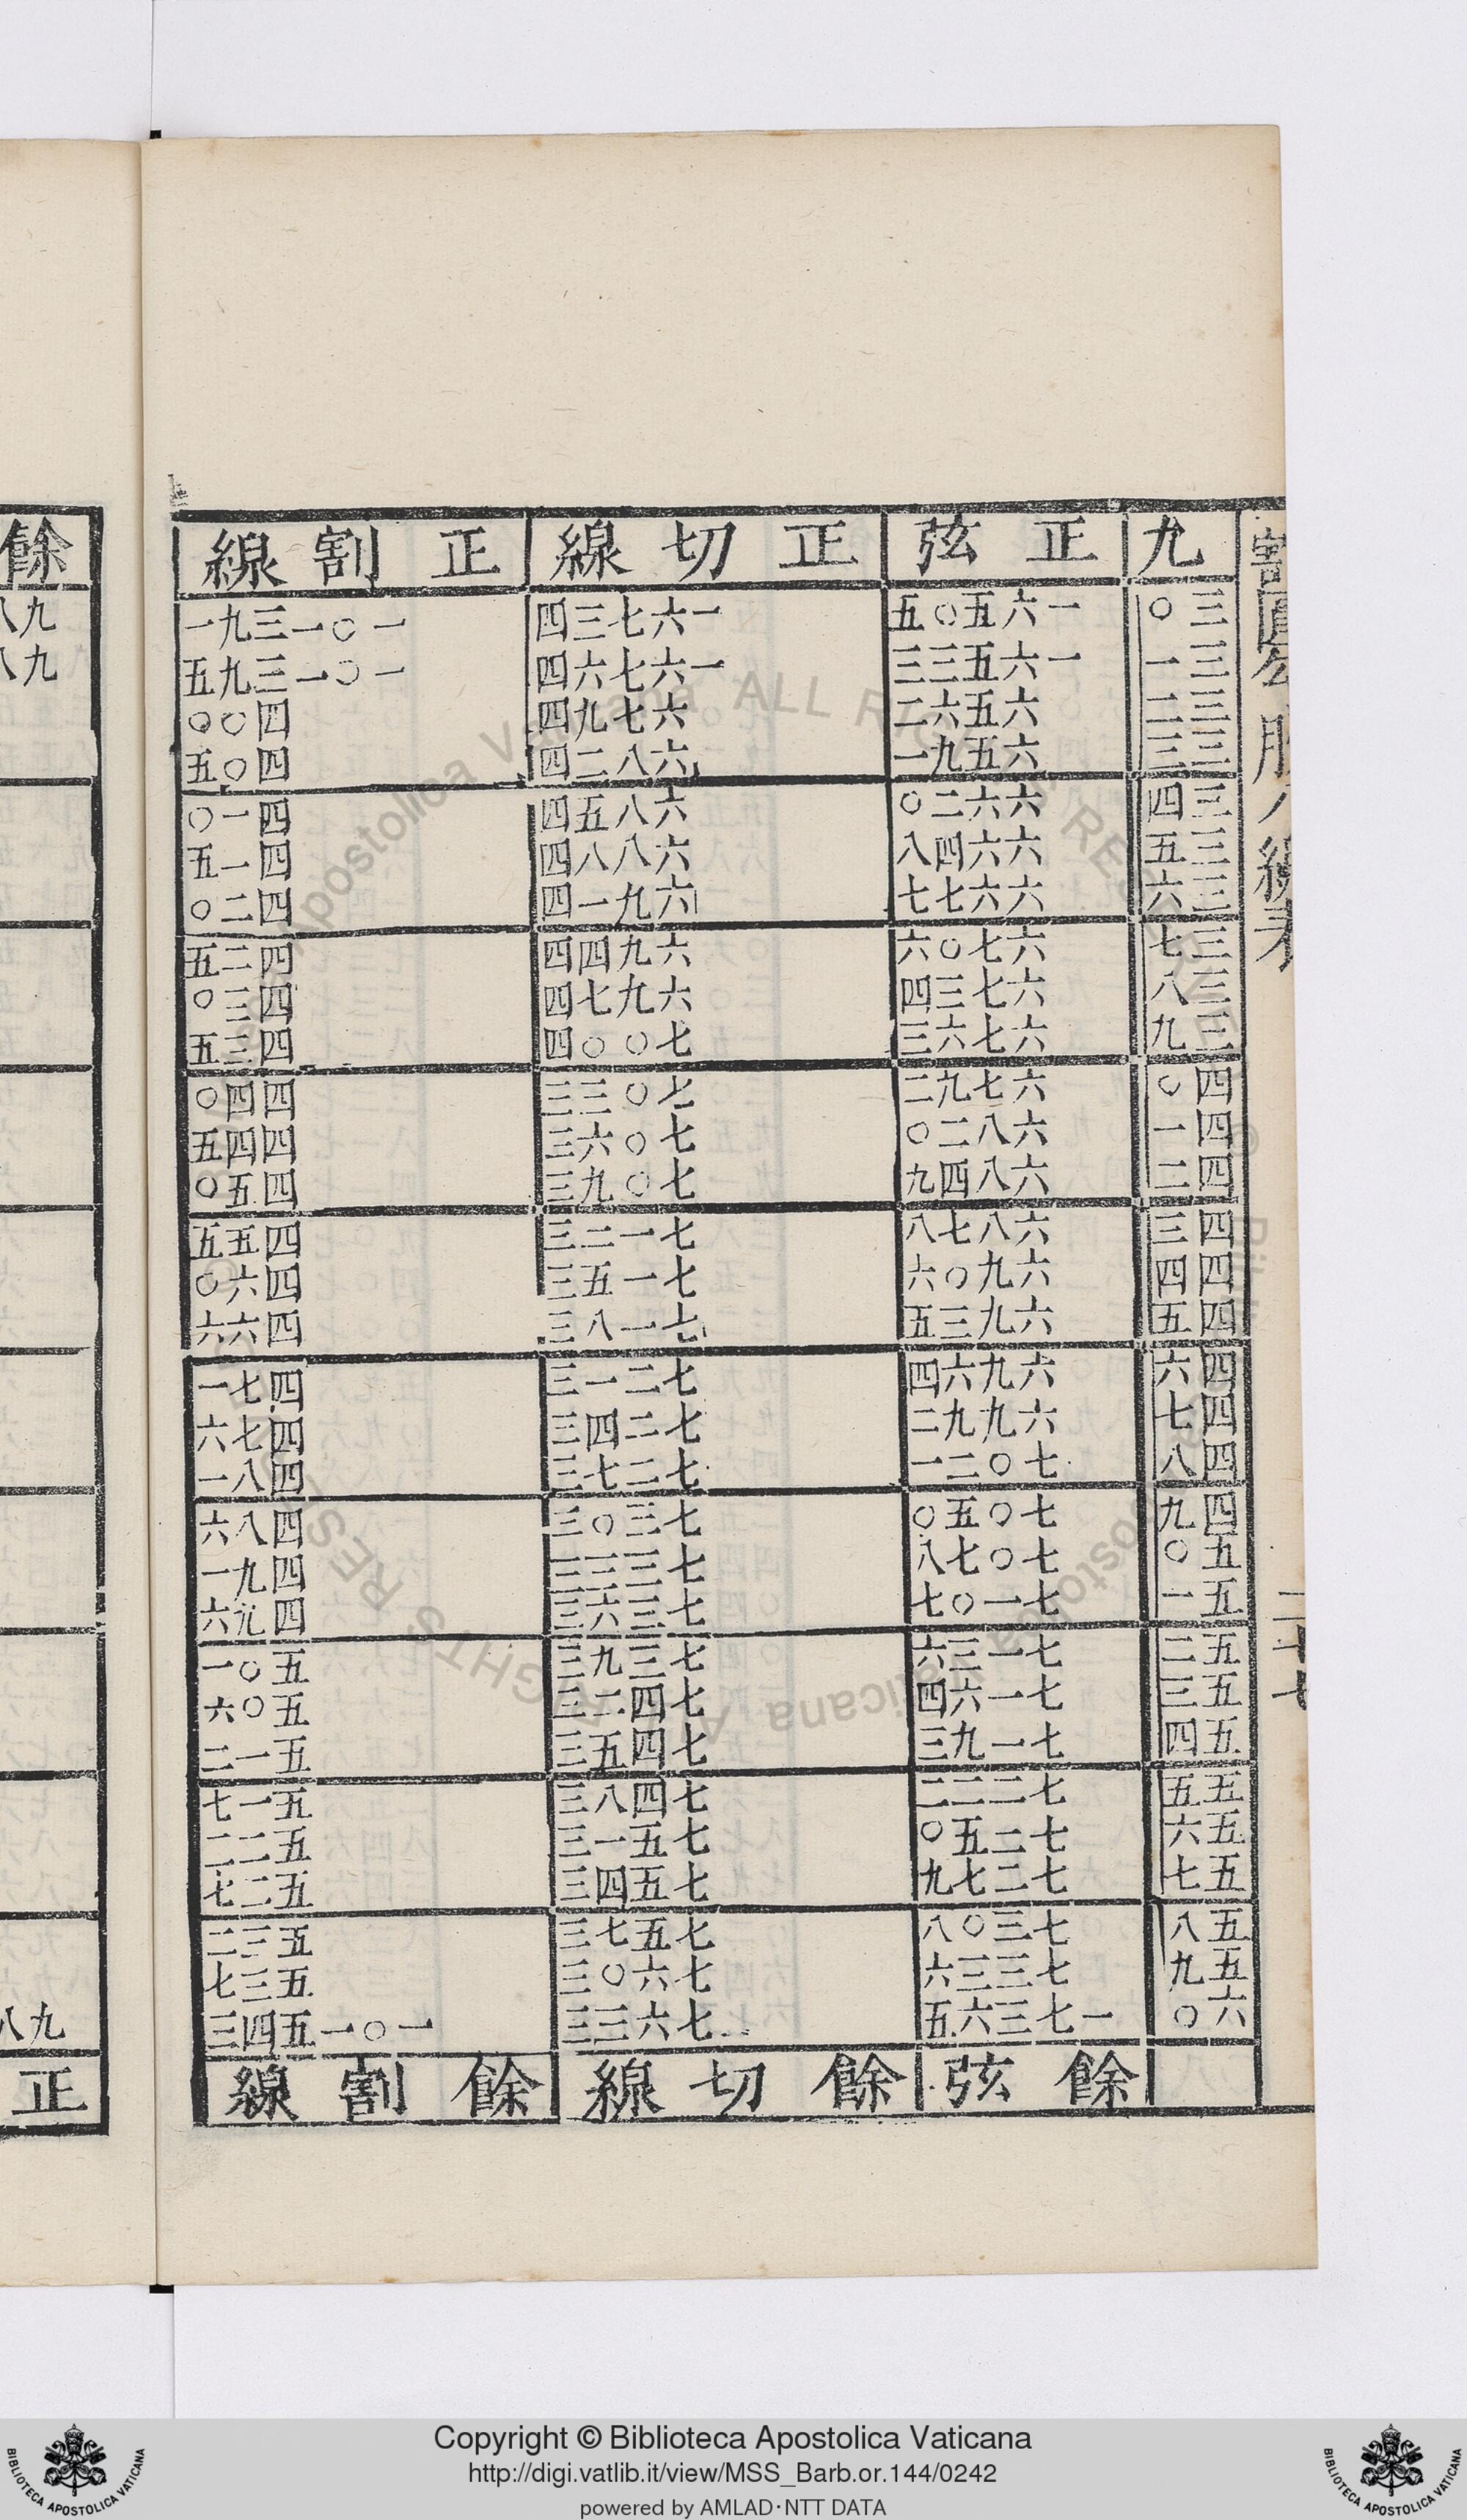 割圓勾股八線表
二十七
九 正弦 正切線 正割線
三〇 一六五〇五 一六七三四 一〇一三九一
三一 一六五三三 一六七六四 一〇一三九五
三二 六五六二 六七九四 四〇〇
三三 六五九一 六八二四 四〇五
三四 六六二〇 六八五四 四一〇
三五 六六四八 六八八四 四一五
三六 六六七七 六九一四 四二〇
三七 六七〇六 六九四四 四二五
三八 六七三四 六九七四 四三〇
三九 六七六三 七〇〇四 四三五
四〇 六七九二 七〇三三 四四〇
四一 六八二〇 七〇六三 四四五
四二 六八四九 七〇九三 四五〇
四三 六八七八 七一二三 四五五
四四 六九〇六 七一五三 四六〇
四五 六九三五 七一八三 四六六
四六 六九六四 七二一三 四七一
四七 六九九二 七二四三 四七六
四八 七〇二一 七二七三 四八一
四九 七〇五〇 七三〇三 四八六
五〇 七〇七八 七三三三 四九一
五一 七一〇七 七三六三 四九六
五二 七一三六 七三九三 五〇一
五三 七一六四 七四二三 五〇六
五四 七一九三 七四五三 五一二
五五 七二二二 七四八三 五一七
五六 七二五〇 七五一三 五二二
五七 七二七九 七五四三 五二七
五八 七三〇八 七五七三 五三二
五九 七三三六 七六〇三 五三七
六〇 一七三六五 七六三三 一〇一五四三
餘弦 餘切線 餘割線
餘
九八
九八
九八
正
Copyright © Biblioteca Apostolica Vaticana
http://digi.vatlib.it/view/MSS_Barb.or.144/0242
powered by AMLAD·NTT DATA